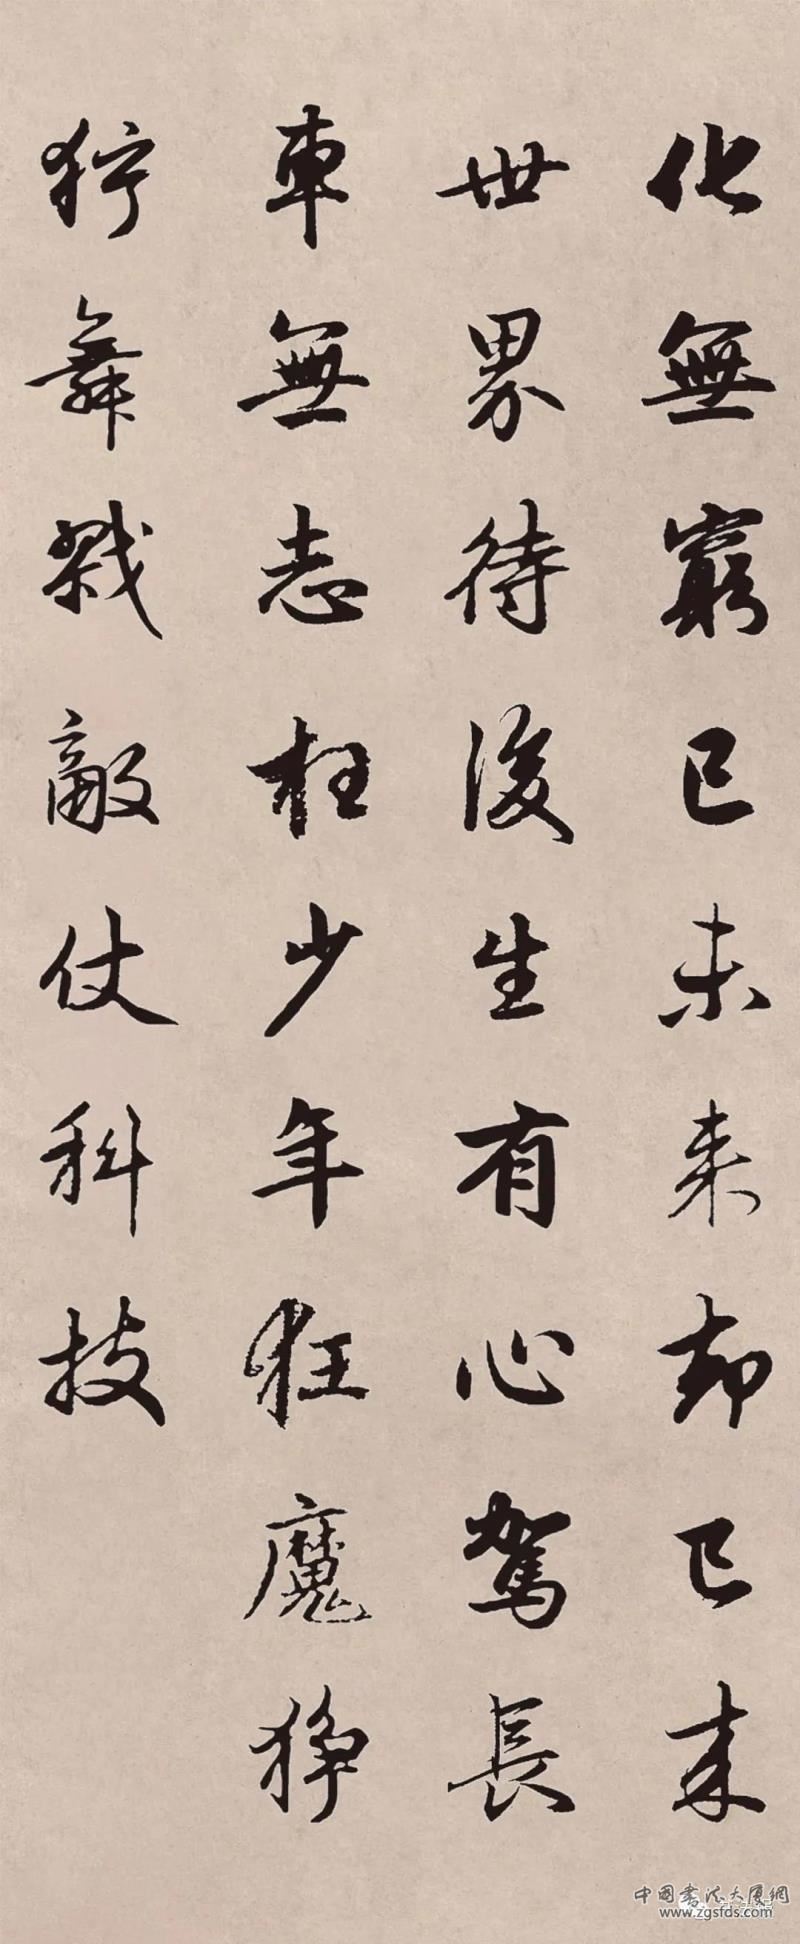 化無窮已未来却已来
世界待後生有心駕長
車無志枉少年狂魔狰
狞舞戟敵仗科技
中国书法大厦網
www.zgsfds.com